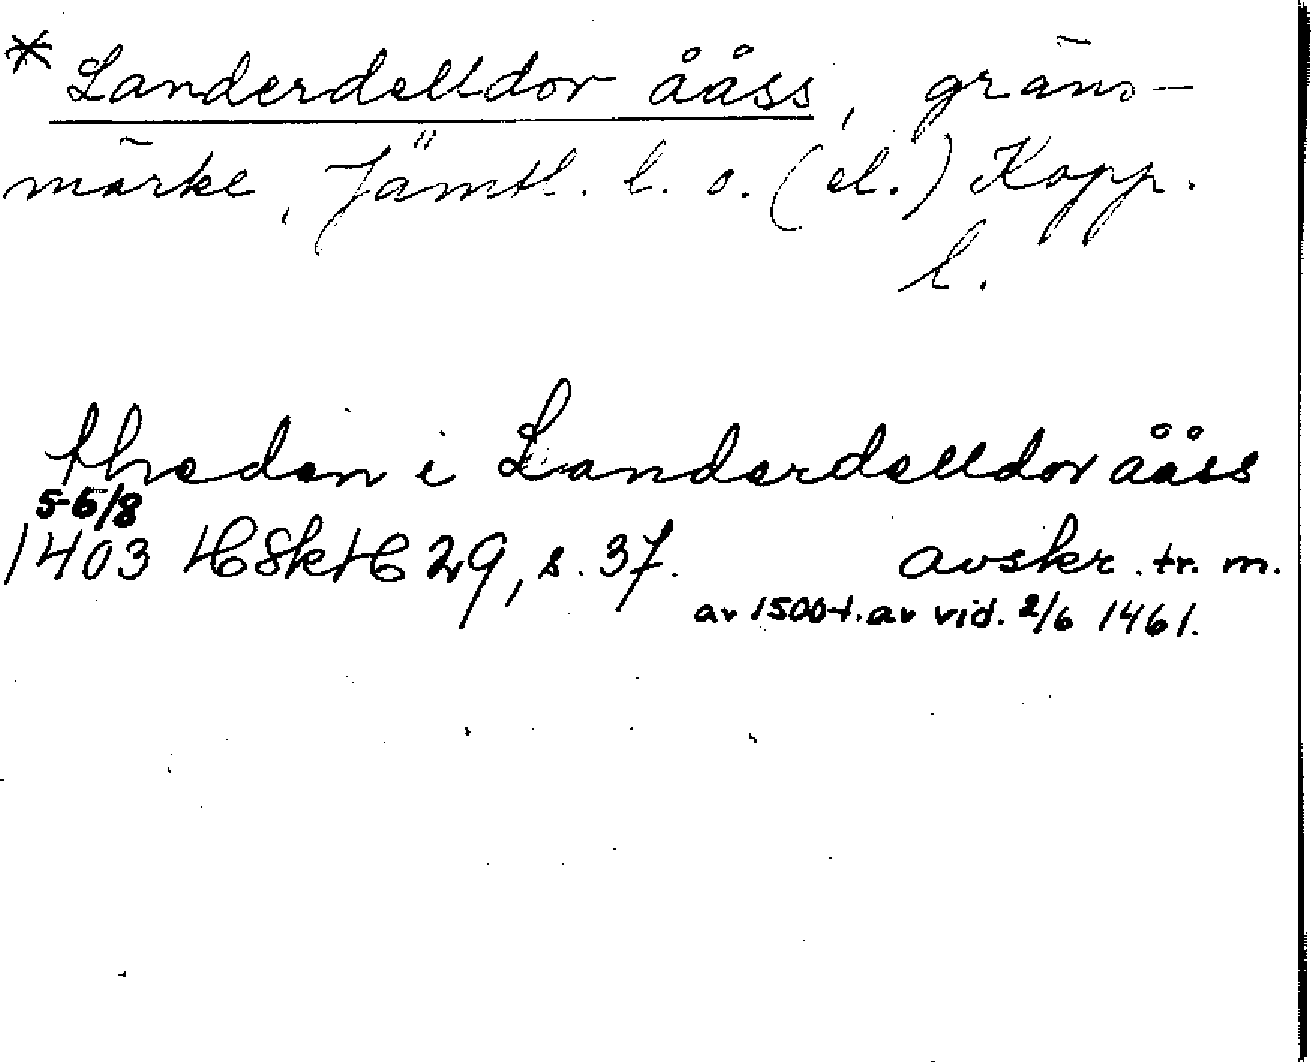 * Landerdelldor ååss, gräns-
märke, Jämtl. l. o. (el.) Kopp.
l.
thedan i Landerdelldor ååss
5-6/8
1403 HSkH 29, s. 37. avskr. tr. m.
av 1500-t. av vid. 2/6 1461.